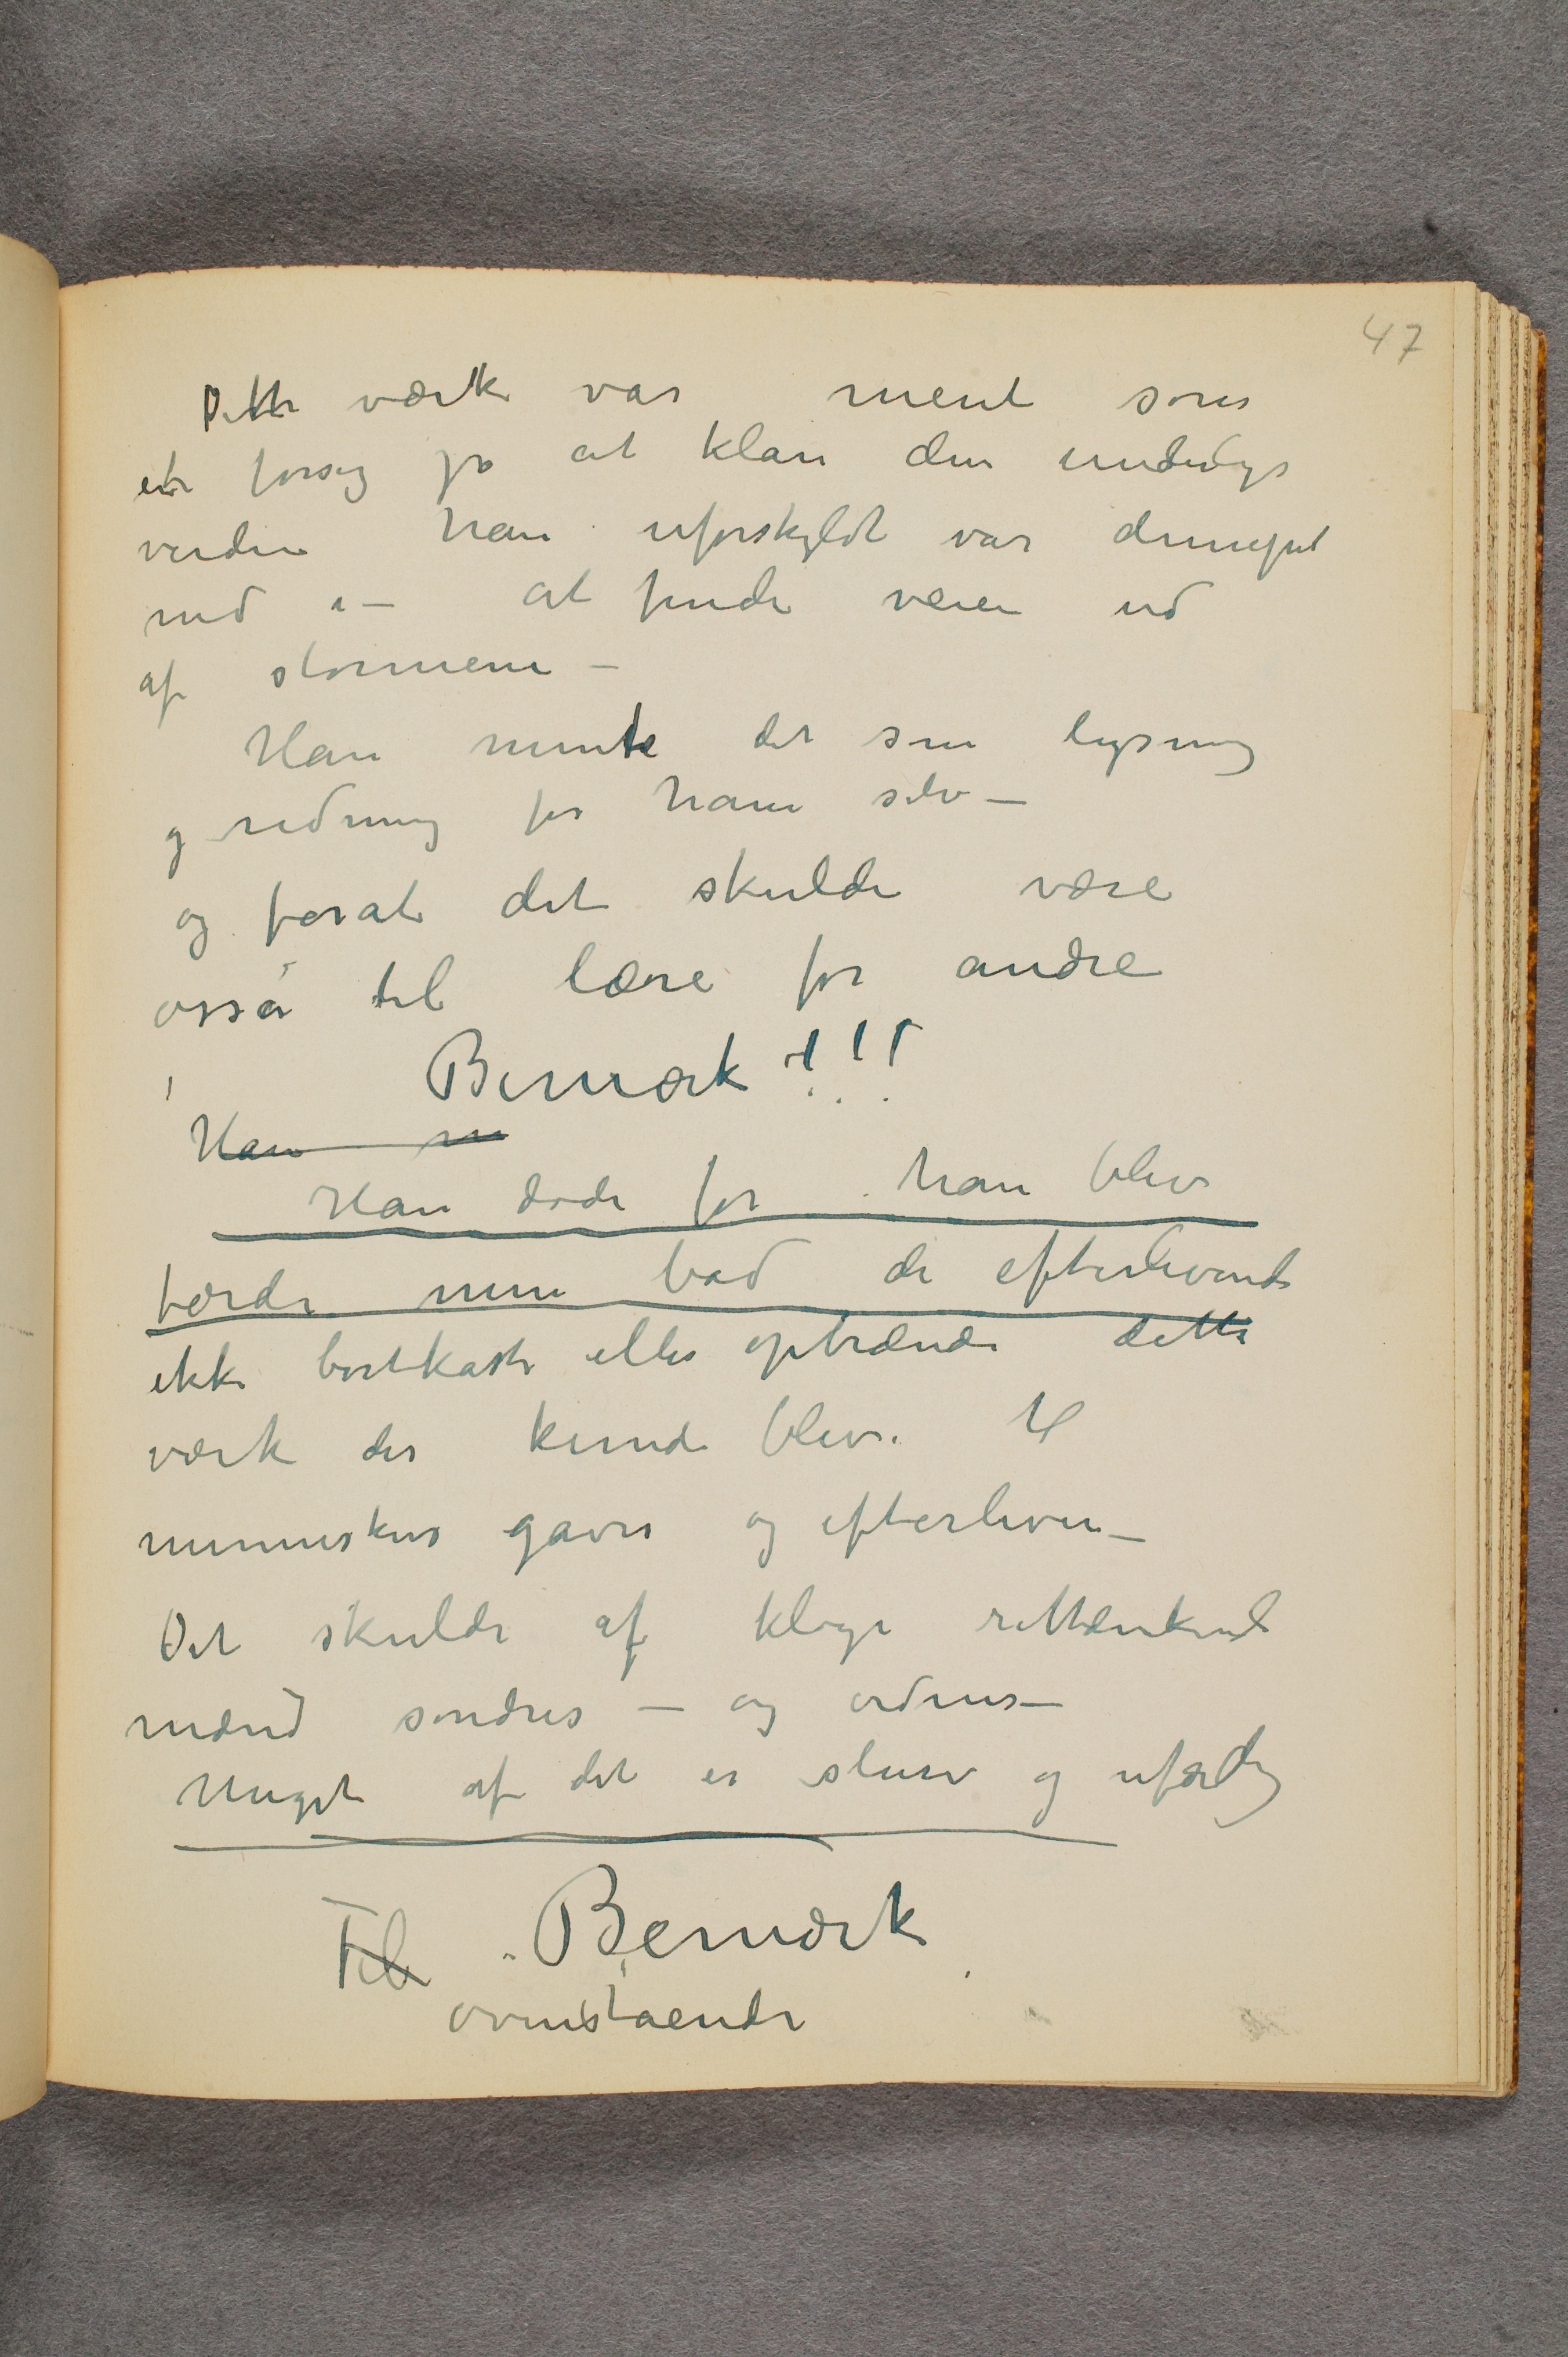 47
Dette værk var ment som
et forsøg på at klare den underlige
verden han uforskyldt var dumpet
ned i – at finde veien ud
af stormene –
Han mente det som lysning
og redning for ham selv –
og forat det skulde være
også til lære for andre
Bemærk !!!
Han m
Han døde før han blev
færdi men bad de efterlevende
ikke bortkaste eller opbrænde dette
værk der kunde blive til
menneskers gavn og efterleven –
Det skulde af kloge rettænkende
mænd sondres – og ordnes –
Meget af det er slurv og ufærdig
Til Bemærk
ovenstaende